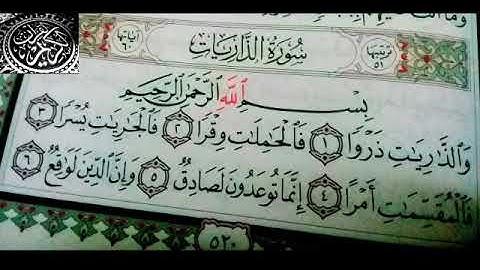 ترتيبها ٥١
سُورَةُ الذَّارِيَاتِ
آياتها ٦٠
بِسْمِ ٱللَّهِ ٱلرَّحْمَٰنِ ٱلرَّحِيمِ
وَالذَّارِيَاتِ ذَرْوًا ١ فَالْحَامِلَاتِ وِقْرًا ٢ فَالْجَارِيَاتِ يُسْرًا ٣
فَالْمُقَسِّمَاتِ أَمْرًا ٤ إِنَّمَا تُوعَدُونَ لَصَادِقٌ ٥ وَإِنَّ الدِّينَ لَوَاقِعٌ ٦
٥٢٠